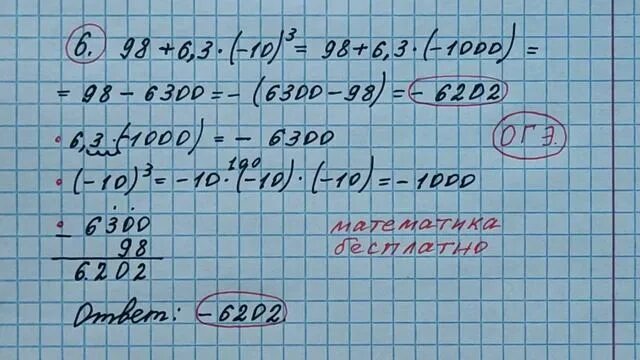 6. 98 + 6,3 · (-10)³ = 98 + 6,3 · (-1000) =
= 98 - 6300 = - (6300 - 98) = - 6202
• 6,3 · (-1000) = - 6300
ОГЭ.
100
• (-10)³ = -10 · (-10) · (-10) = - 1000
• 6300
- 98
6202
математика
бесплатно
Ответ: - 6202